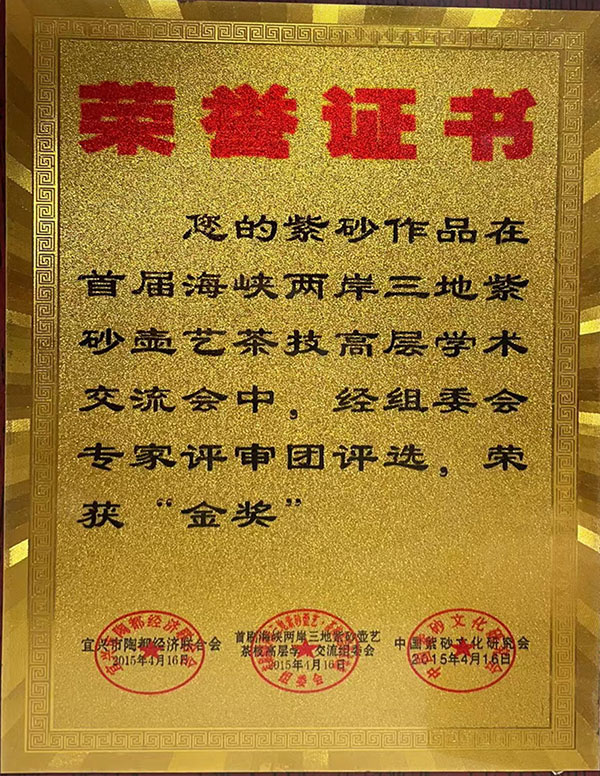 荣誉证书
您的紫砂作品在
首届海峡两岸三地紫
砂壶艺茶技高层学术
交流会中，经组委会
专家评审团评选，荣
获“金奖”
宜兴市陶都经济联合会
2015年4月16日
首届海峡两岸三地紫砂壶艺
茶技高层学 交流组委会
2015年4月16日
中国紫砂文化研究会
2015年4月16日